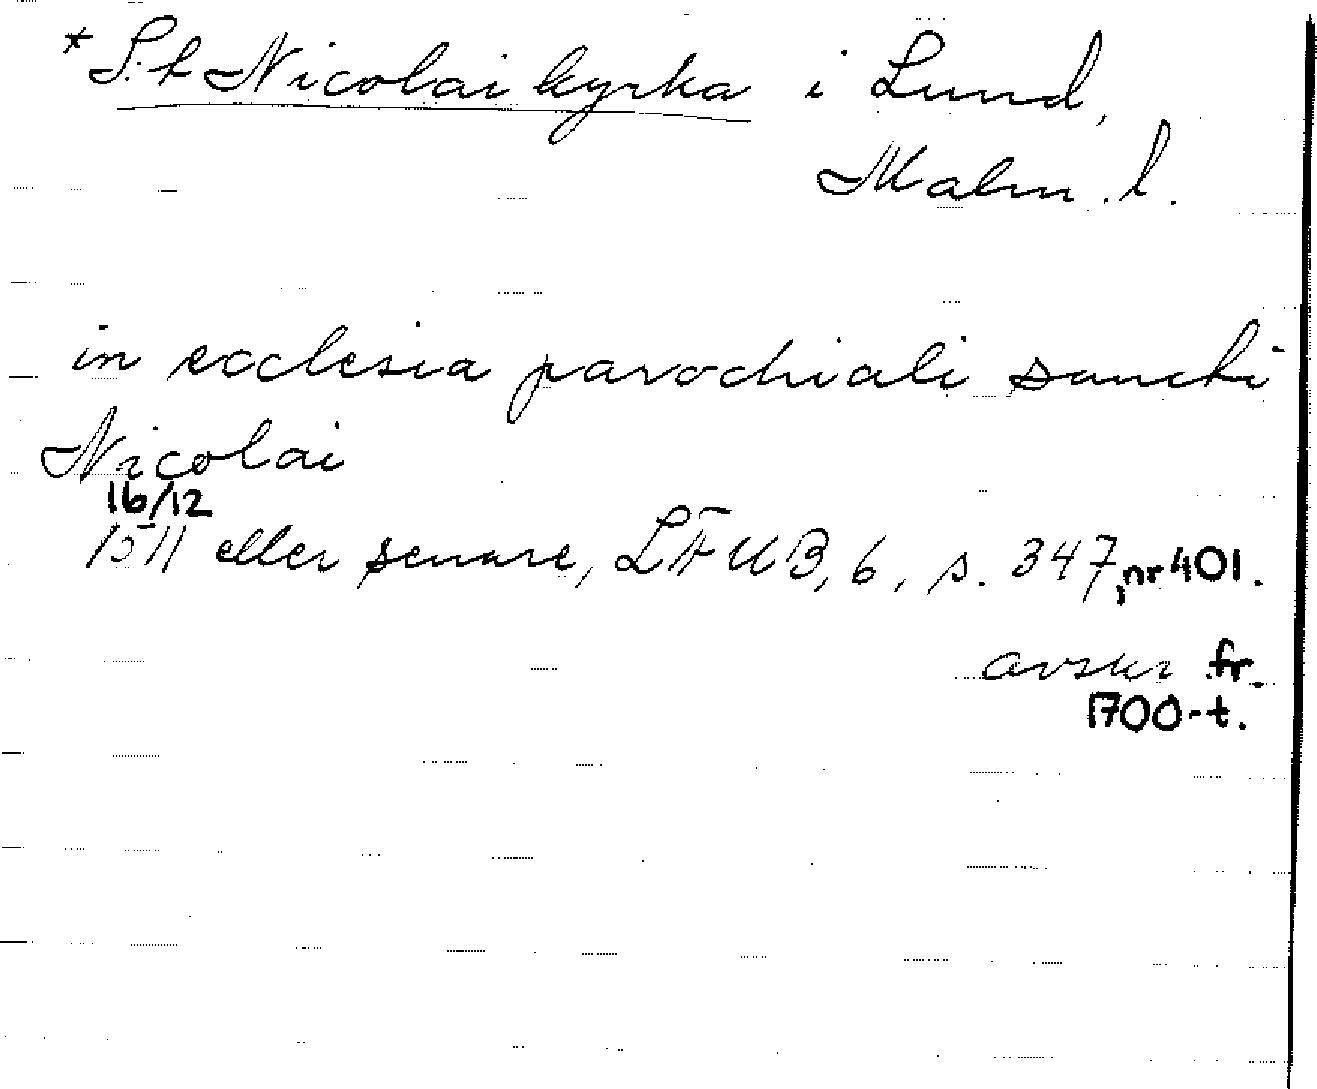 *S:t Nicolai kyrka i Lund,
Malm. l.
in ecclesia parochiali sancti
Nicolai
16/12
1511 eller senare, LÄUB, 6, s. 347, nr 401.
avskr fr.
1700-t.